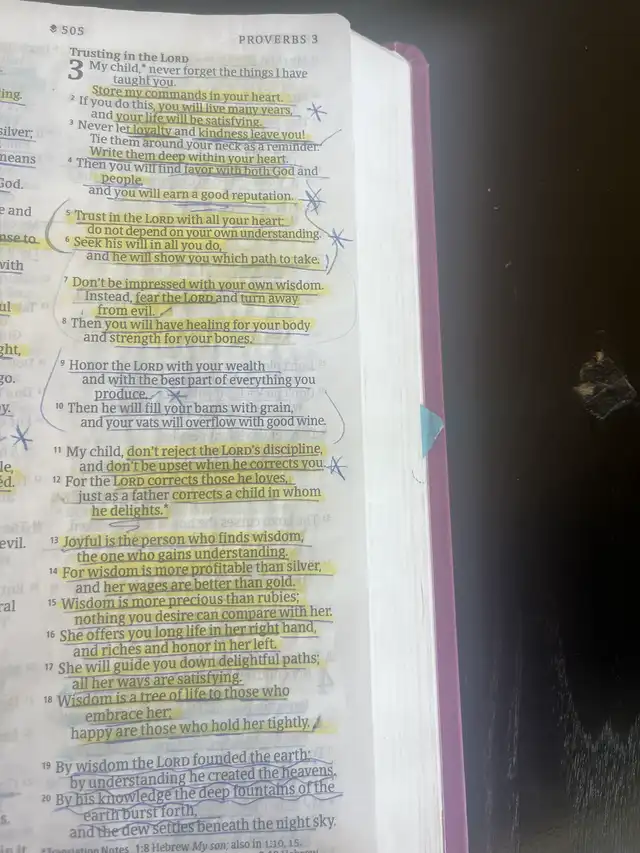 505
PROVERBS 3
Trusting in the LORD
3 My child,* never forget the things I have
taught you.
Store my commands in your heart.
2 If you do this, you will live many years,
and your life will be satisfying.
3 Never let loyalty and kindness leave you!
Tie them around your neck as a reminder.
Write them deep within your heart.
4 Then you will find favor with both God and
people,
and you will earn a good reputation.
5 Trust in the LORD with all your heart;
do not depend on your own understanding.
6 Seek his will in all you do,
and he will show you which path to take.
7 Don't be impressed with your own wisdom.
Instead, fear the LORD and turn away
from evil.
8 Then you will have healing for your body
and strength for your bones.
9 Honor the LORD with your wealth
and with the best part of everything you
produce.
10 Then he will fill your barns with grain,
and your vats will overflow with good wine.
11 My child, don't reject the LORD's discipline,
and don't be upset when he corrects you.
12 For the LORD corrects those he loves,
just as a father corrects a child in whom
he delights.*
13 Joyful is the person who finds wisdom,
the one who gains understanding.
14 For wisdom is more profitable than silver,
and her wages are better than gold.
15 Wisdom is more precious than rubies;
nothing you desire can compare with her.
16 She offers you long life in her right hand,
and riches and honor in her left.
17 She will guide you down delightful paths;
all her ways are satisfying.
18 Wisdom is a tree of life to those who
embrace her;
happy are those who hold her tightly.
19 By wisdom the LORD founded the earth;
by understanding he created the heavens.
20 By his knowledge the deep fountains of the
earth burst forth,
and the dew settles beneath the night sky.
1:8 Hebrew My son; also in 1:10, 15.
silver;
means
God.
e and
nse to
with
ght,
go.
y.
le,
evil.